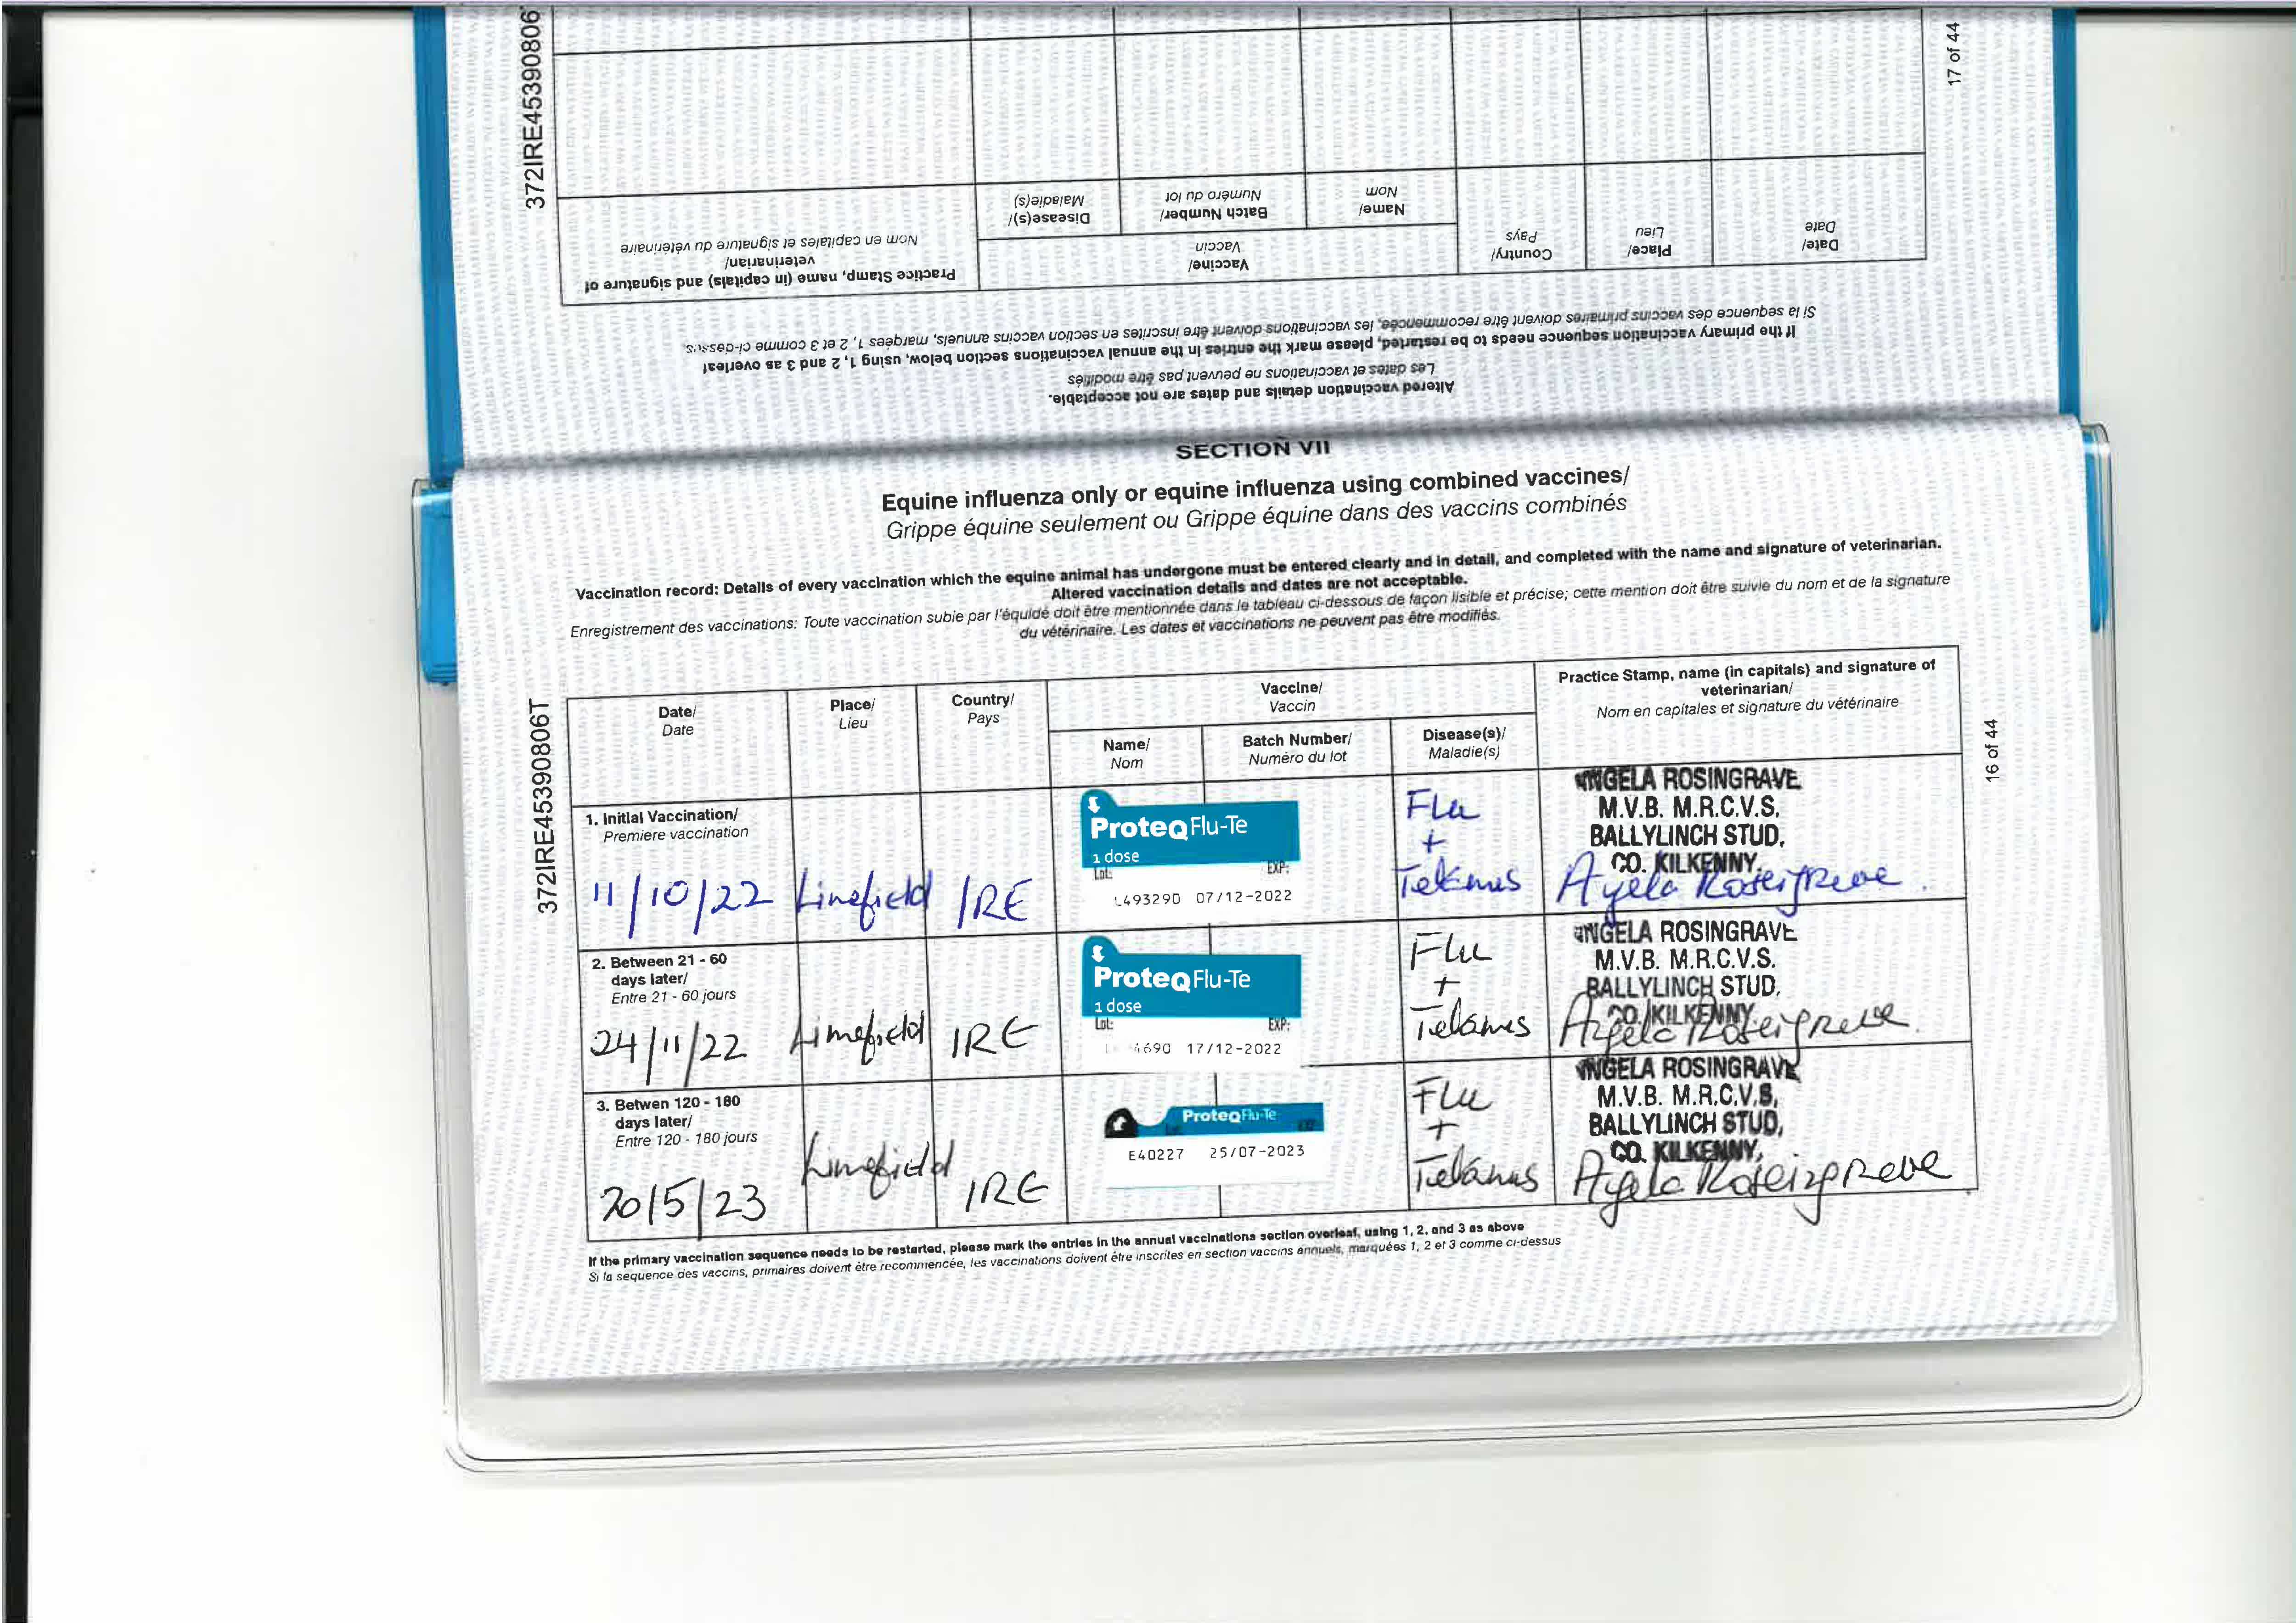 372IRE45390806
17 of 44
Date/
Date
Place/
Lieu
Country/
Pays
Vaccine/
Vaccin
Name/
Nom
Batch Number/
Numéro du lot
Disease(s)/
Maladie(s)
Practice Stamp, name (in capitals) and signature of
veterinarian/
Nom en capitales et signature du vétérinaire
Altered vaccination details and dates are not acceptable.
Les dates et vaccinations ne peuvent pas être modifiés
If the primary vaccination sequence needs to be restarted, please mark the entries in the annual vaccinations section below, using 1, 2 and 3 as overleaf
Si la sequence des vaccins primaires doivent être recommencée, les vaccinations doivent être inscrites en section vaccins annuels, marqées 1, 2 et 3 comme ci-dessus.
SECTION VII
Equine influenza only or equine influenza using combined vaccines/
Grippe équine seulement ou Grippe équine dans des vaccins combinés
Vaccination record: Details of every vaccination which the equine animal has undergone must be entered clearly and in detail, and completed with the name and signature of veterinarian.
Altered vaccination details and dates are not acceptable.
Enregistrement des vaccinations: Toute vaccination subie par l'équidé doit être mentionnée dans le tableau ci-dessous de façon lisible et précise; cette mention doit être suivie du nom et de la signature
du vétérinaire. Les dates et vaccinations ne peuvent pas être modifiés.
372IRE45390806T
16 of 44
Date/
Date
Place/
Lieu
Country/
Pays
Vaccine/
Vaccin
Name/
Nom
Batch Number/
Numéro du lot
Disease(s)/
Maladie(s)
Practice Stamp, name (in capitals) and signature of
veterinarian/
Nom en capitales et signature du vétérinaire
1. Initial Vaccination/
Premiere vaccination
11/10/22
Limefield
IRE
ProteqFlu-Te
1 dose
Lot: EXP:
L493290 07/12-2022
Flu
+
Tetanus
ANGELA ROSINGRAVE
M.V.B. M.R.C.V.S.
BALLYLINCH STUD,
CO. KILKENNY.
Angela Rosingrave
2. Between 21 - 60
days later/
Entre 21 - 60 jours
24/11/22
Limefield
IRE
ProteqFlu-Te
1 dose
Lot: EXP:
4690 17/12-2022
Flu
+
Tetanus
ANGELA ROSINGRAVE
M.V.B. M.R.C.V.S.
BALLYLINCH STUD,
CO. KILKENNY
Angela Rosingrave
3. Betwen 120 - 180
days later/
Entre 120 - 180 jours
20/5/23
Limefield
IRE
ProteqFlu-Te
E40227 25/07-2023
Flu
+
Tetanus
ANGELA ROSINGRAVE
M.V.B. M.R.C.V.S,
BALLYLINCH STUD,
CO. KILKENNY,
Angela Rosingrave
If the primary vaccination sequence needs to be restarted, please mark the entries in the annual vaccinations section overleaf, using 1, 2, and 3 as above
Si la sequence des vaccins, primaires doivent être recommencée, les vaccinations doivent être inscrites en section vaccins annuels, marquées 1, 2 et 3 comme ci-dessus